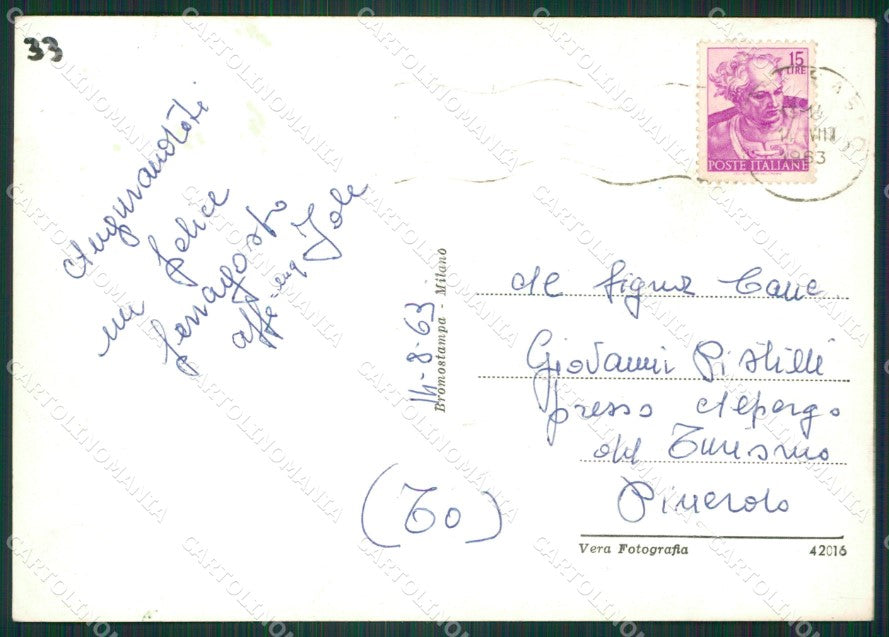 33
Auguronoti
un felice
ferragosto
affe-ang Jole
14-8-63
Bromostampa - Milano
15
LIRE
POSTE ITALIANE
VIII
1963
Al Signor Cav.
Giovanni Pistilli
presso Albergo
del Turismo
Pinerolo
(To)
Vera Fotografia
42016
CARTOLINOMANIA